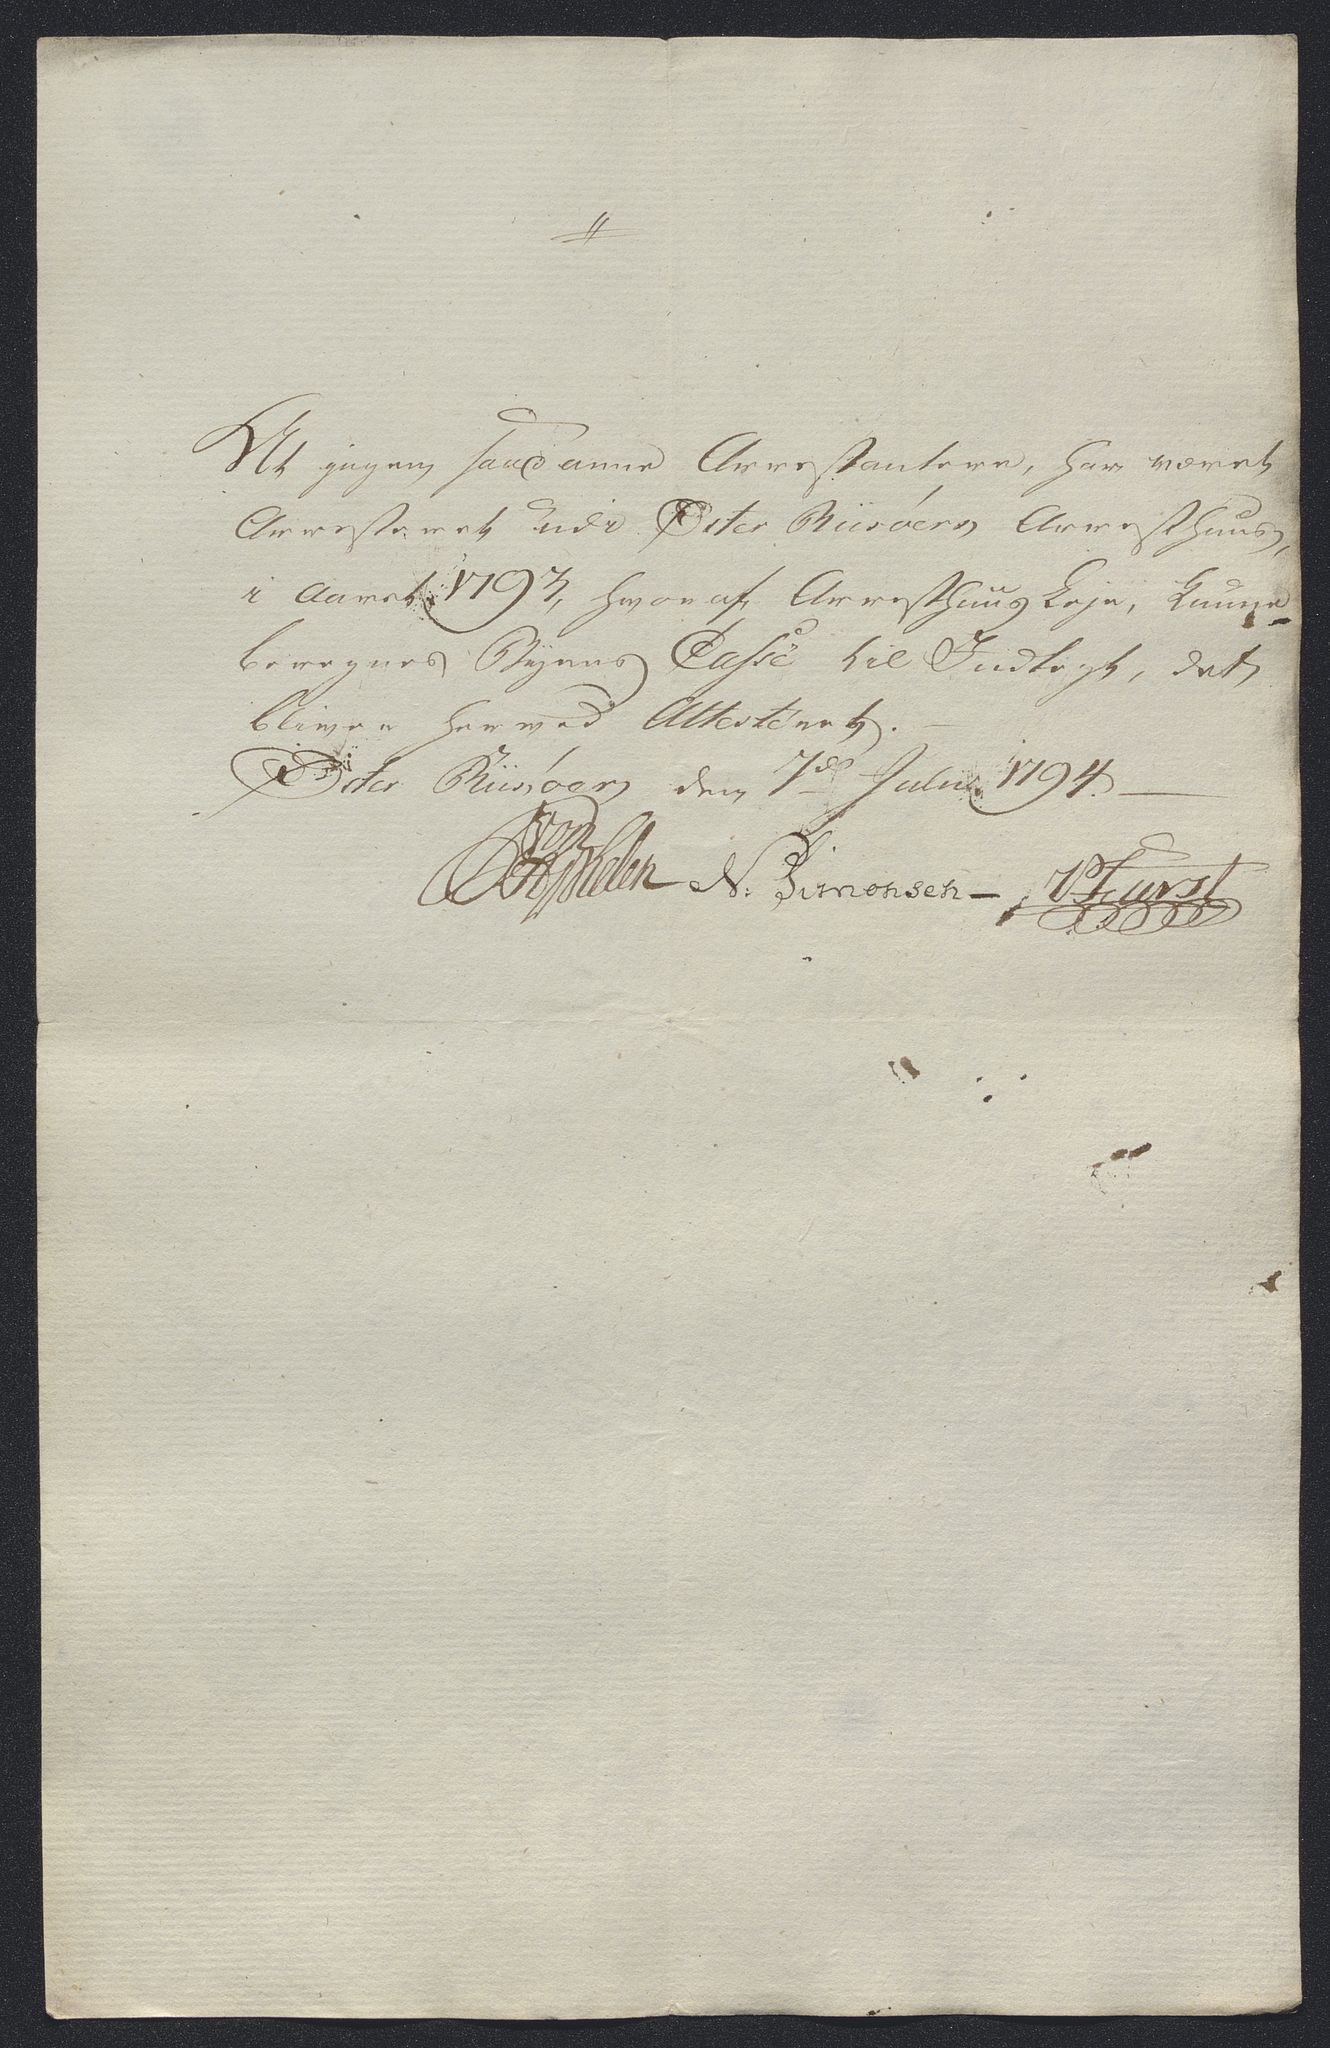 //
At ingen saadanne Arrestantere, har været
Arresteret udi Øster Riisöers Arresthuus,
i Aaret 1793, hvoraf Arresthuus Leje, kunne
beregnes Byens Casse til Indtegt, det
bliver herved Attesteret.
Øster Riisöer den 7de Julii 1794.
N. Simonsen
Fürst